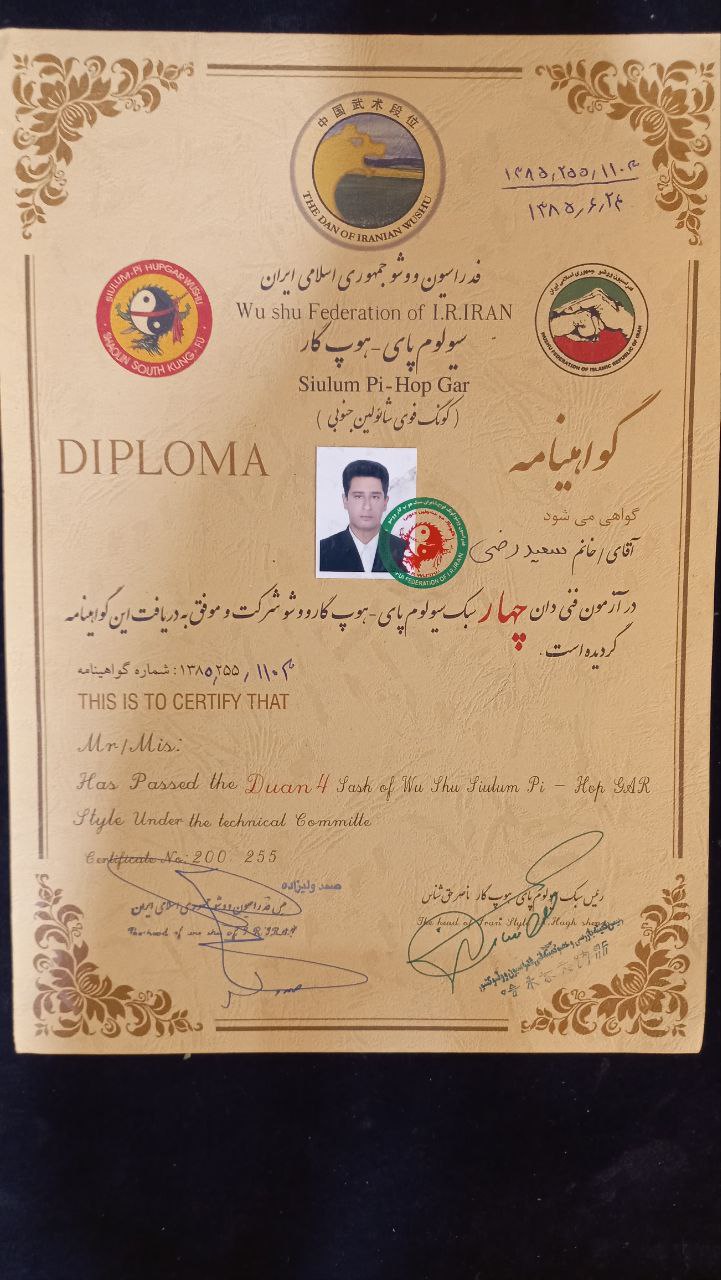 中国武术段位
THE DAN OF IRANIAN WUSHU
۱۳۸۵,۲۵۵,۱۱۰۳
۱۳۸۵,۶,۲۴
فدراسیون ووشو جمهوری اسلامی ایران
Wu shu Federation of I.R.IRAN
سیولوم پای - هوپ گار
Siulum Pi-Hop Gar
( کونگ فوی شائولین جنوبی )
SIULUM-PI HUPGAR WUSHU
SHAOLIN SOUTH KUNG-FU
فدراسیون ووشو جمهوری اسلامی ایران
WUSHU FEDERATION OF ISLAMIC REPUBLIC OF IRAN
DIPLOMA
گواهینامه
گواهی می شود
آقای / خانم سعید رضی
FEDERATION OF I.R.IRAN
در آزمون فنی دان چهار سبک سیولوم پای - هوپ گار ووشو شرکت و موفق به دریافت این گواهینامه
گردیده است .
شماره گواهینامه : ۱۳۸۵,۲۵۵ , ۱۱۰۳
THIS IS TO CERTIFY THAT
Mr/Mis:
Has Passed the Duan 4 Sash of Wu Shu Siulum Pi - Hop GAR
Style Under the technical Committe
Certificate No: 200 255
صمد ولیزاده
رئیس فدراسیون ووشو جمهوری اسلامی ایران
The head of wu shu of I.R.IRAN
رئیس سبک سیولوم پای هوپ گار ناصر حق شناس
The head of Iran Style